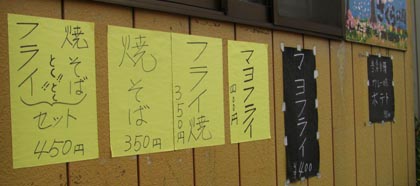 焼そば
フライ
セット
450円
焼そば
350円
フライ焼
350円
マヨフライ
マヨフライ
¥400
ポテト